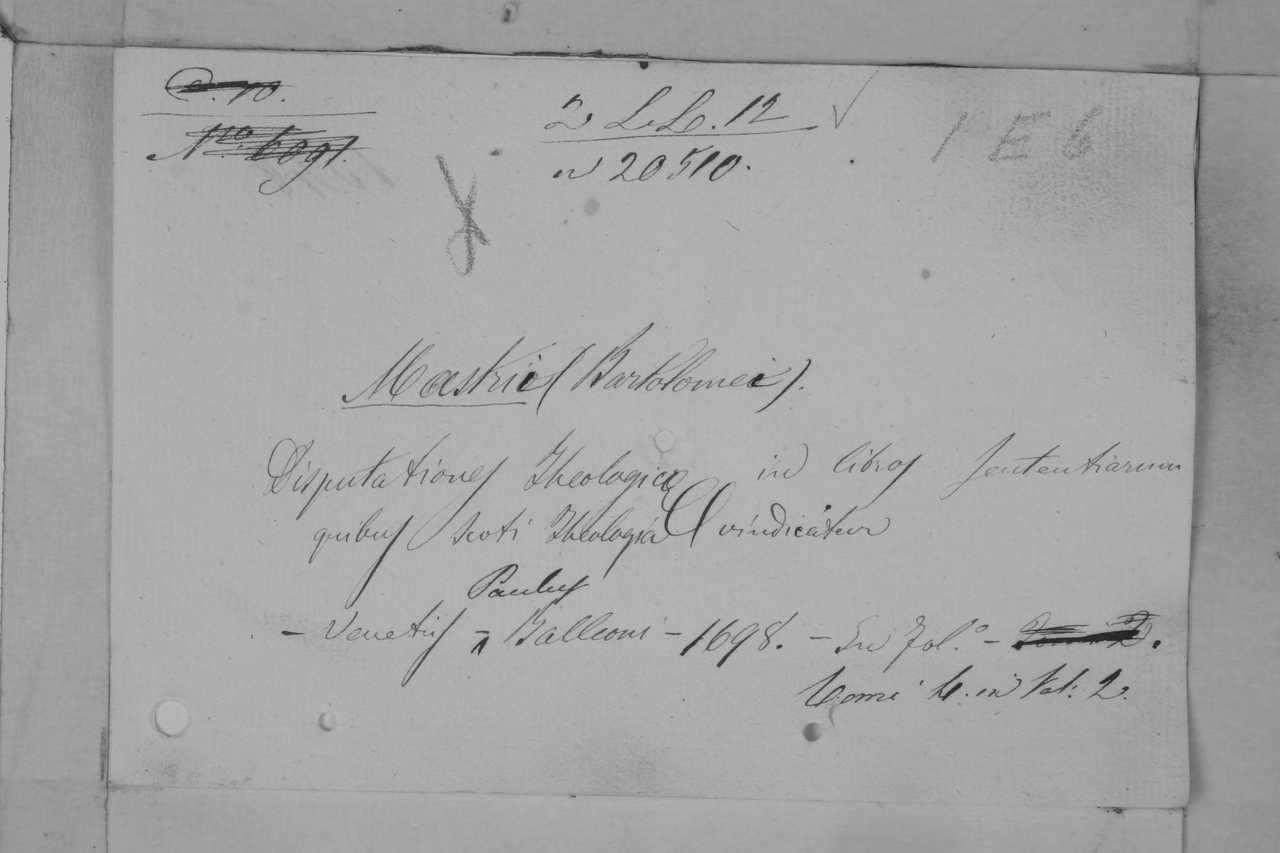 C. 10.
Nro. 6091.
2 LL. 12
n 20510.
1 E 6
Mastrii (Bartolomei).
Disputationes Theologicæ in libros sententiarum
quibus Scoti Theologia vindicatur
Paulus
- Venetiis - Balleoni - 1698. - In fol.º -
tomi 4. in Vol: 2.